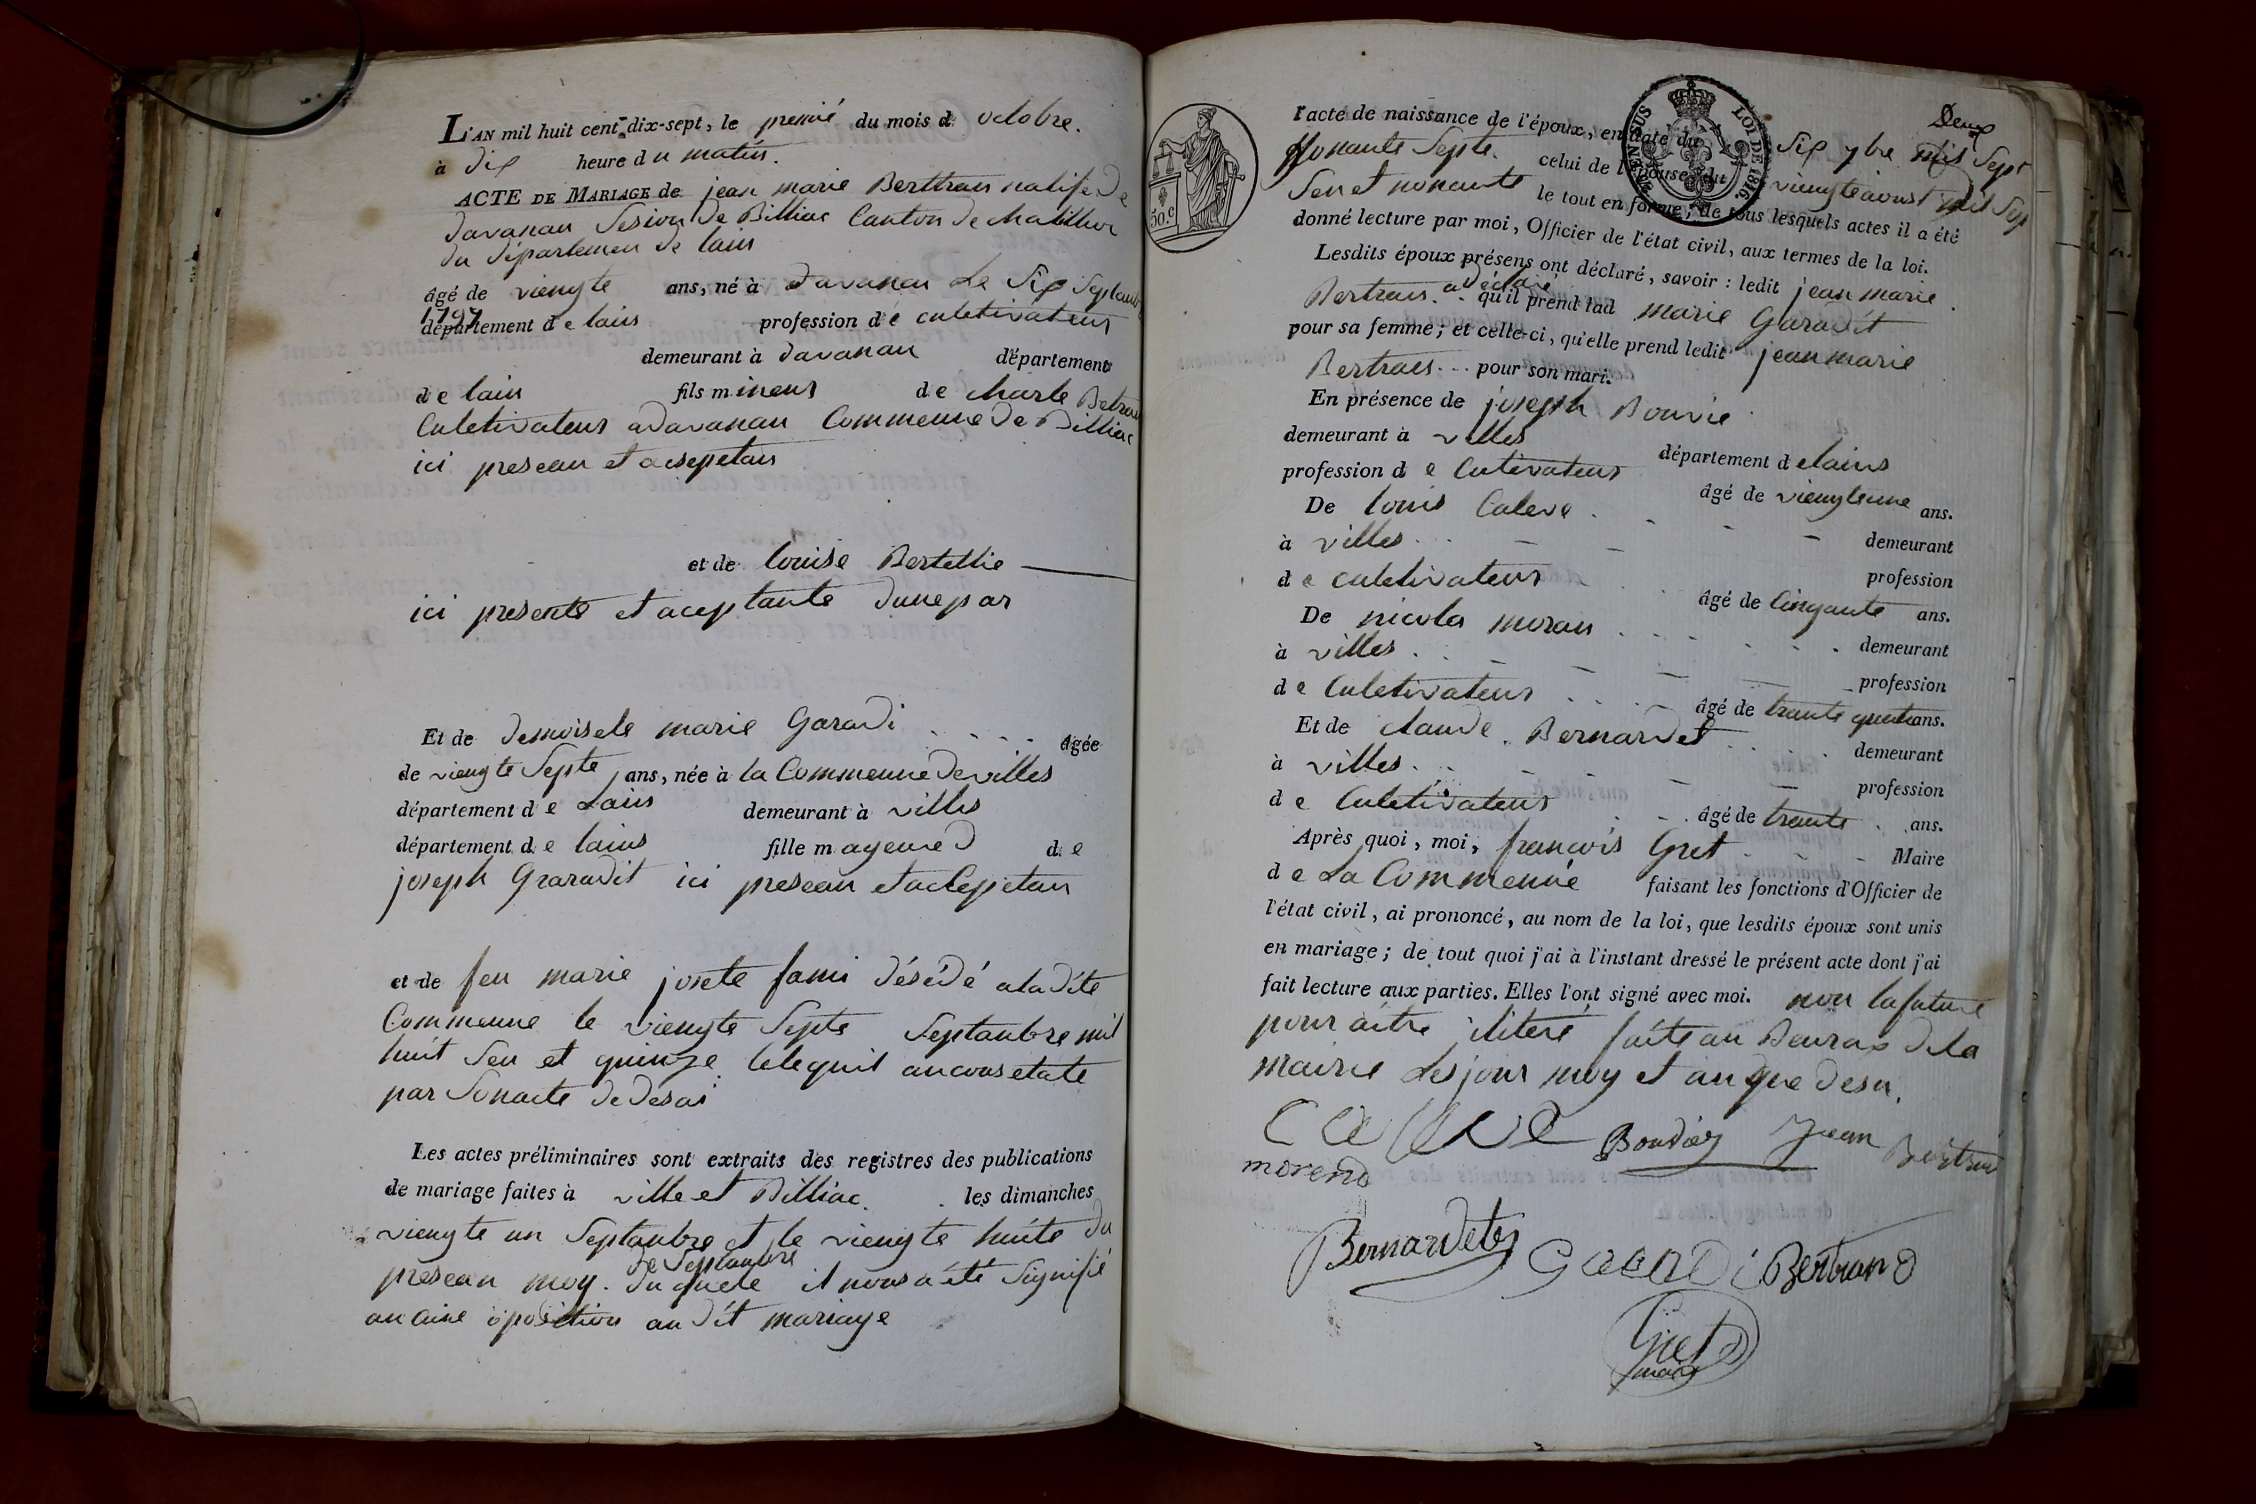 L'AN mil huit cent dix-sept, le premié du mois d octobre.
à dix heure du matin.
ACTE DE MARIAGE de jean marie Berttran natife de
davanan Sesion de Billiac Canton de Chatillon
du département de lain
âgé de viengte ans, né à davanan Le Six Septanbre
1797
département de lain profession de culetivateur
demeurant à davanan département
de lain fils mineur de charle Betran
Culetivateur a davanan Commeune de Billiac
ici presean et acseptan
et de louise Bertellie
ici presente et aceptante dune par
Et de demoisele marie Garadi âgée
de viengte Septe ans, née à la Commeune de villes
département de Lain demeurant à villes
département de lains fille mageured de
joseph Graradit ici presean et acleptan
et de feu marie josete fami désédé a la dite
Commeune le viengte Septe Septanbre mil
huit Sen et quinze
par Son acte de desai
Les actes préliminaires sont extraits des registres des publications
de mariage faites à ville et Billiac. les dimanches
viengte un Septanbre et le viengte huite du
de Septanbre
presean moy. duquele il nous a été Signifié
aucune oposition au dit mariage
Deux
l'acte de naissance de l'époux, en date du Six 7bre mil Sept
Nonante Septe. celui de l'épouse, du viengte aoust mil Sep
Sen et nonante le tout en forme; de tous lesquels actes il a été
donné lecture par moi, Officier de l'état civil, aux termes de la loi.
Lesdits époux présens ont déclaré, savoir : ledit jean marie
Bertran a déclaré qu'il prend lad marie Garadit
pour sa femme; et celle-ci, qu'elle prend ledit jean marie
Bertran pour son mari.
En présence de joseph Bouvie
demeurant à villes département de lains
profession de Cutivateur âgé de viengteune ans.
De louis Caleve demeurant
à villes profession
de culetivateur âgé de Cinqante ans.
De nicolas moran demeurant
à villes profession
de Culetivateur âgé de trante quatre ans.
Et de claude Bernardet demeurant
à villes profession
de Culetivateur âgé de trante ans.
Après quoi, moi, francois Gret Maire
de La Commeune faisant les fonctions d'Officier de
l'état civil, ai prononcé, au nom de la loi, que lesdits époux sont unis
en mariage; de tout quoi j'ai à l'instant dressé le présent acte dont j'ai
fait lecture aux parties. Elles l'ont signé avec moi. non la future
pour aitre iliteré faite au Beuraux de la
mairie Les jour moy et an que desu.
Bouvier Jean Bertran
morend
Bernardet Garadi Bertrand
Gret
maire
50.c
LOI DE 1816.